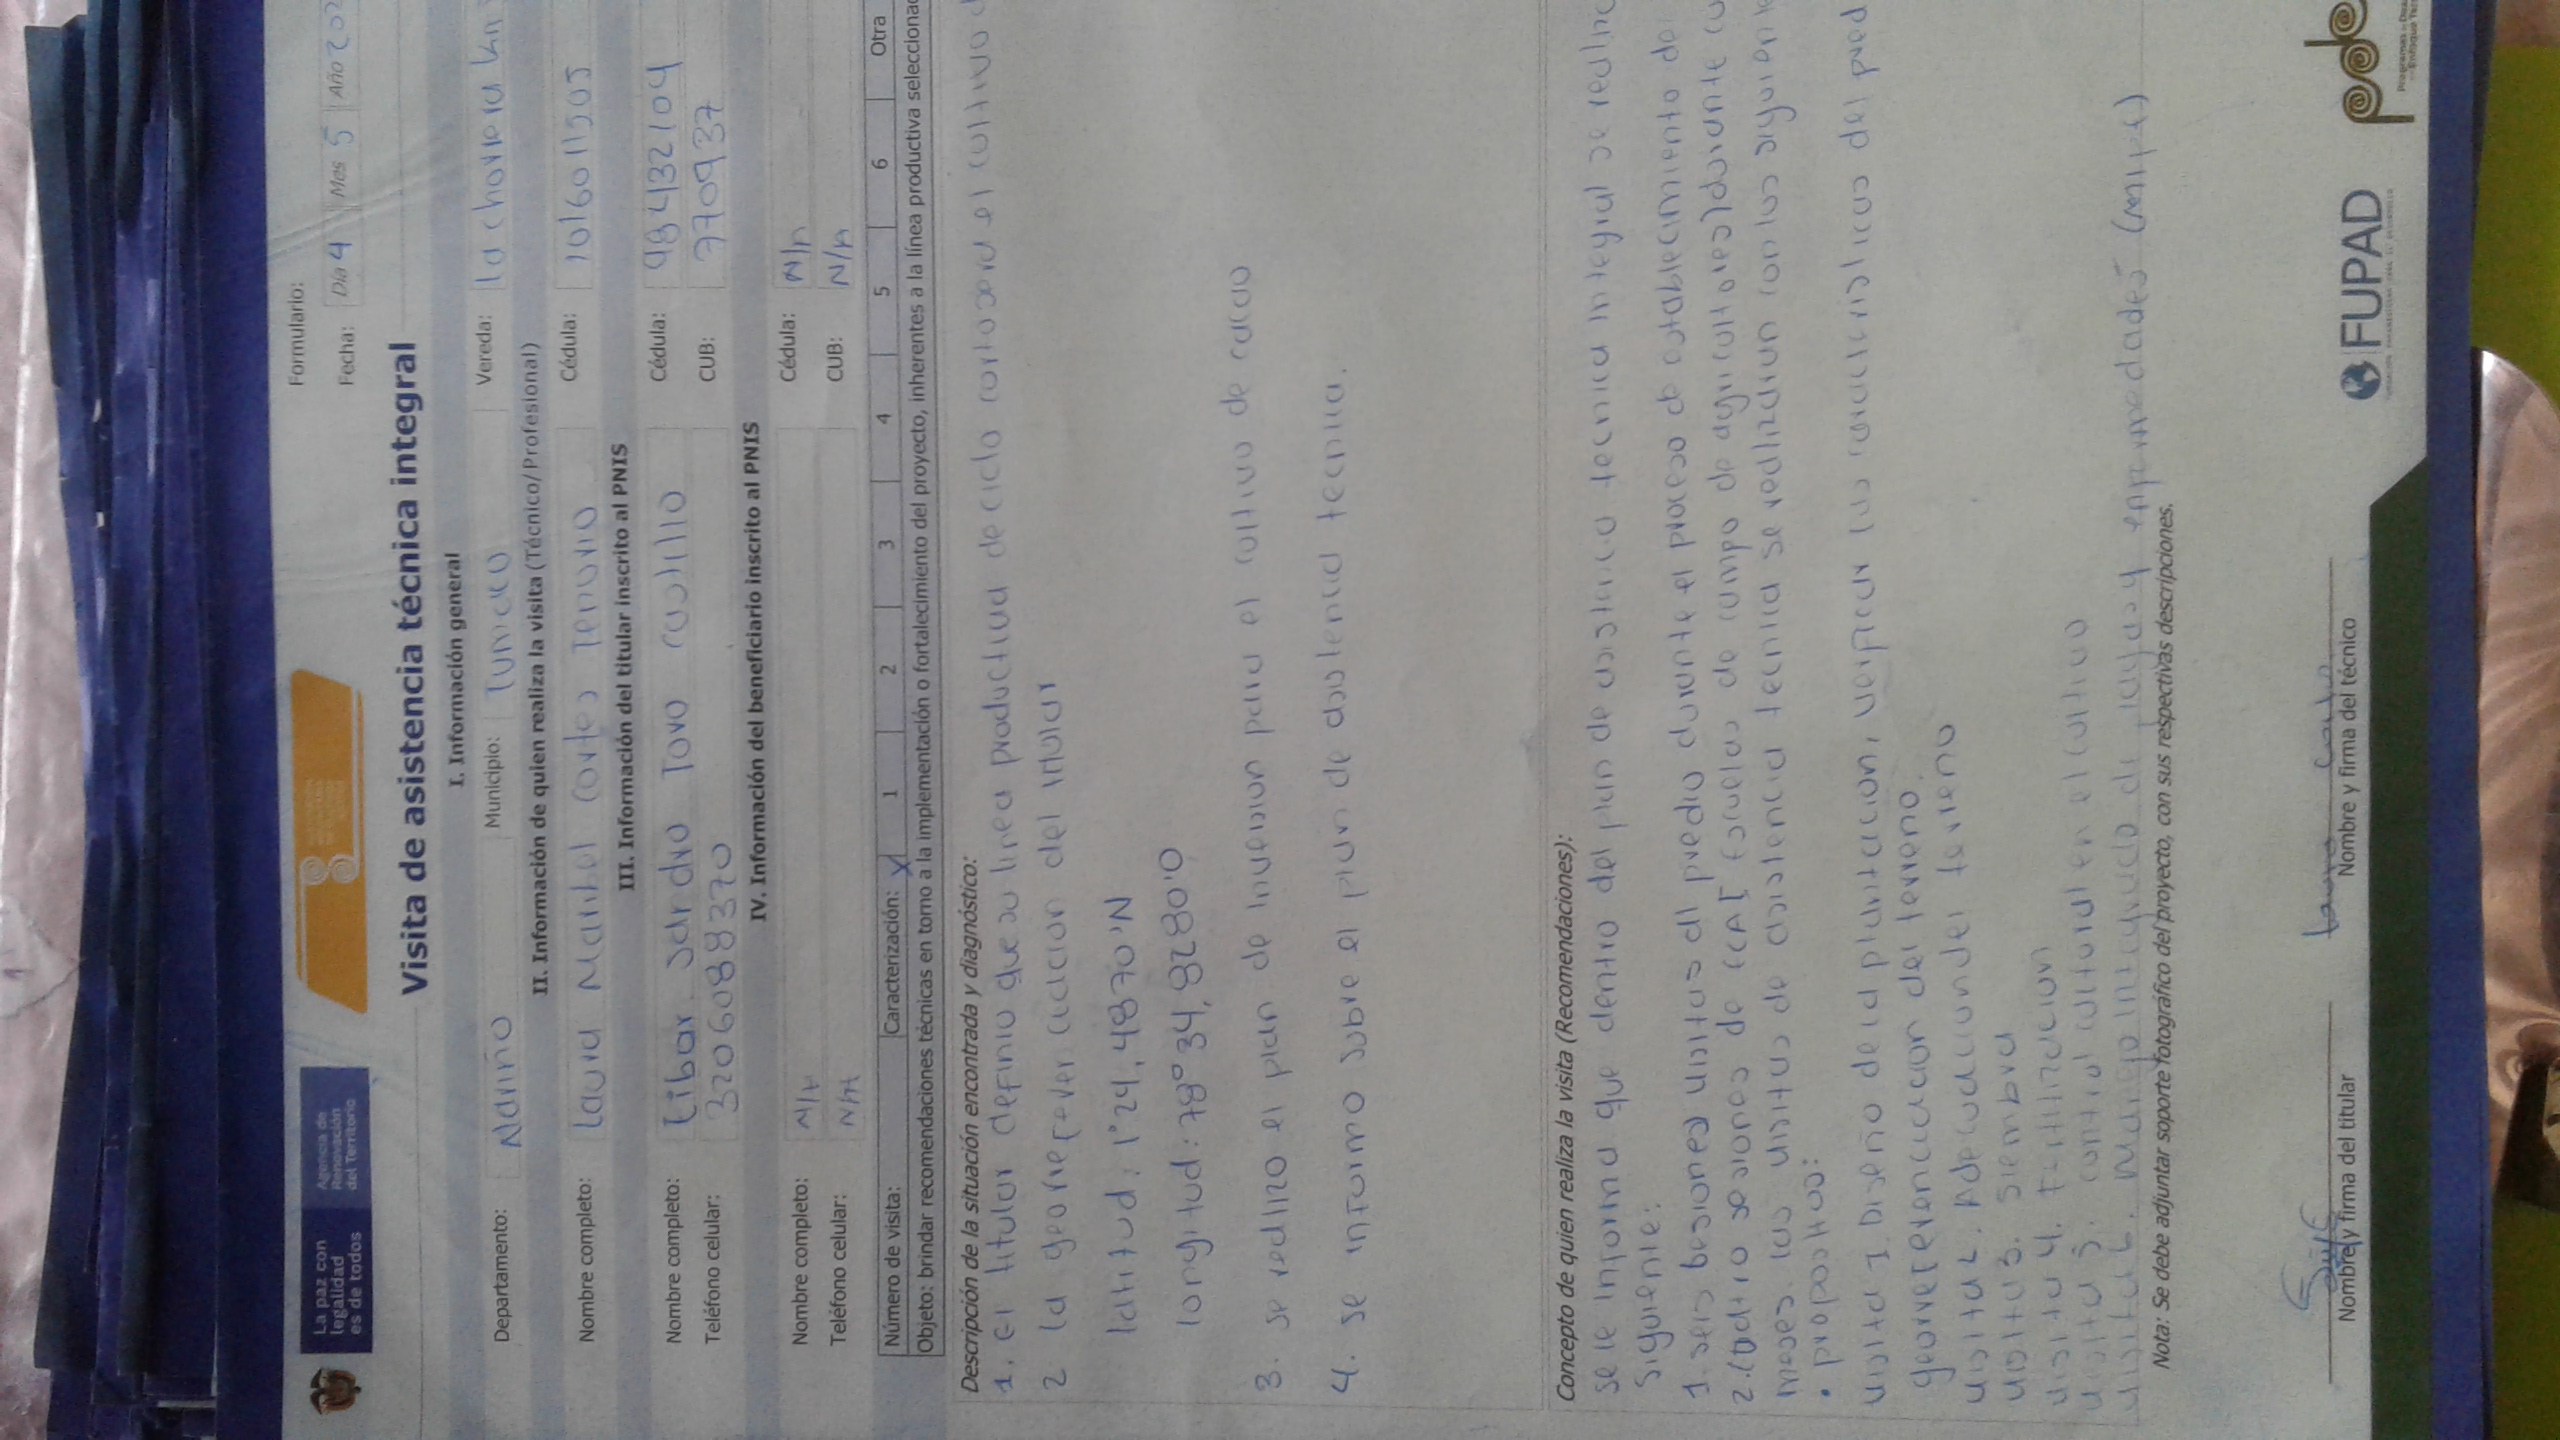 La paz con
legalidad
es de todos
Agencia de
Renovación
del Territorio
Formulario:
Fecha: Día 4 Mes 5 Año 202
Visita de asistencia técnica integral
I. Información general
Departamento: Nariño Municipio: Tumaco Vereda: la chorrera
II. Información de quien realiza la visita (Técnico/Profesional)
Nombre completo: Laura Maribel Cortes Tenorio Cédula: 1016011505
III. Información del titular inscrito al PNIS
Nombre completo: Libar Sandro Toro Castillo Cédula: 98432104
Teléfono celular: 3206088370 CUB: 770937
IV. Información del beneficiario inscrito al PNIS
Nombre completo: N/A Cédula: N/A
Teléfono celular: N/A CUB: N/A
Número de visita: Caracterización: X 1 2 3 4 5 6 Otra
Objeto: brindar recomendaciones técnicas en torno a la implementación o fortalecimiento del proyecto, inherentes a la línea productiva seleccionad
Descripción de la situación encontrada y diagnóstico:
1. El titular definio que su linea productiva de ciclo corto sera el cultivo d
2 la georreferenciacion del titular
latitud: 1°24,4870'N
longitud: 78°34,9280'O
3. se realizo el plan de inversion para el cultivo de cacao
4. se informo sobre el plan de asistencia tecnica.
Concepto de quien realiza la visita (Recomendaciones):
se le informa que dentro del plan de asistencia tecnica integral se realiza
siguiente:
1. seis sesiones visitas al predio durante el proceso de establecimiento de
2. cuatro sesiones de ECAS Escuelas de campo de agricultores) durante cu
meses. las visitas de asistencia tecnica se realizaran con los siguiente
• propositos:
visita 1. Diseño de la plantacion, verificar las caracteristicas del pred
georreferenciacion del terreno.
visita 2. Adecuacion del terreno
visita 3. siembra
visita 4. Fertilizacion
visita 5. control cultural en el cultivo
visita 6. manejo integrado de plagas y enfermedades (mipe)
Nota: Se debe adjuntar soporte fotográfico del proyecto, con sus respectivas descripciones.
Laura Cortes
Nombre y firma del titular Nombre y firma del técnico
FUPAD
pde